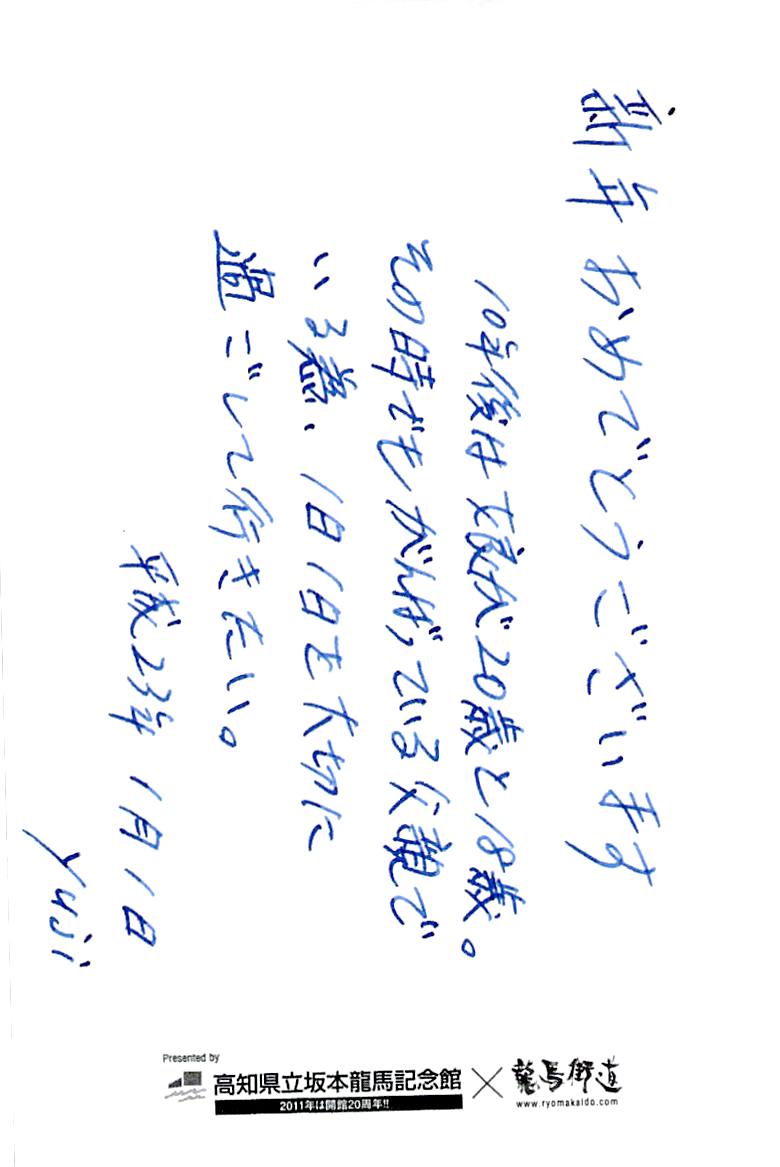 新年おめでとうございます
10年後は娘が20歳と18歳。
その時でもがんばっている父親で
いる為、1日1日を大切に
過ごして行きたい。
平成23年1月1日
Yuji
Presented by
高知県立坂本龍馬記念館 × 龍馬街道
2011年は開館20周年!!
www.ryomakaido.com